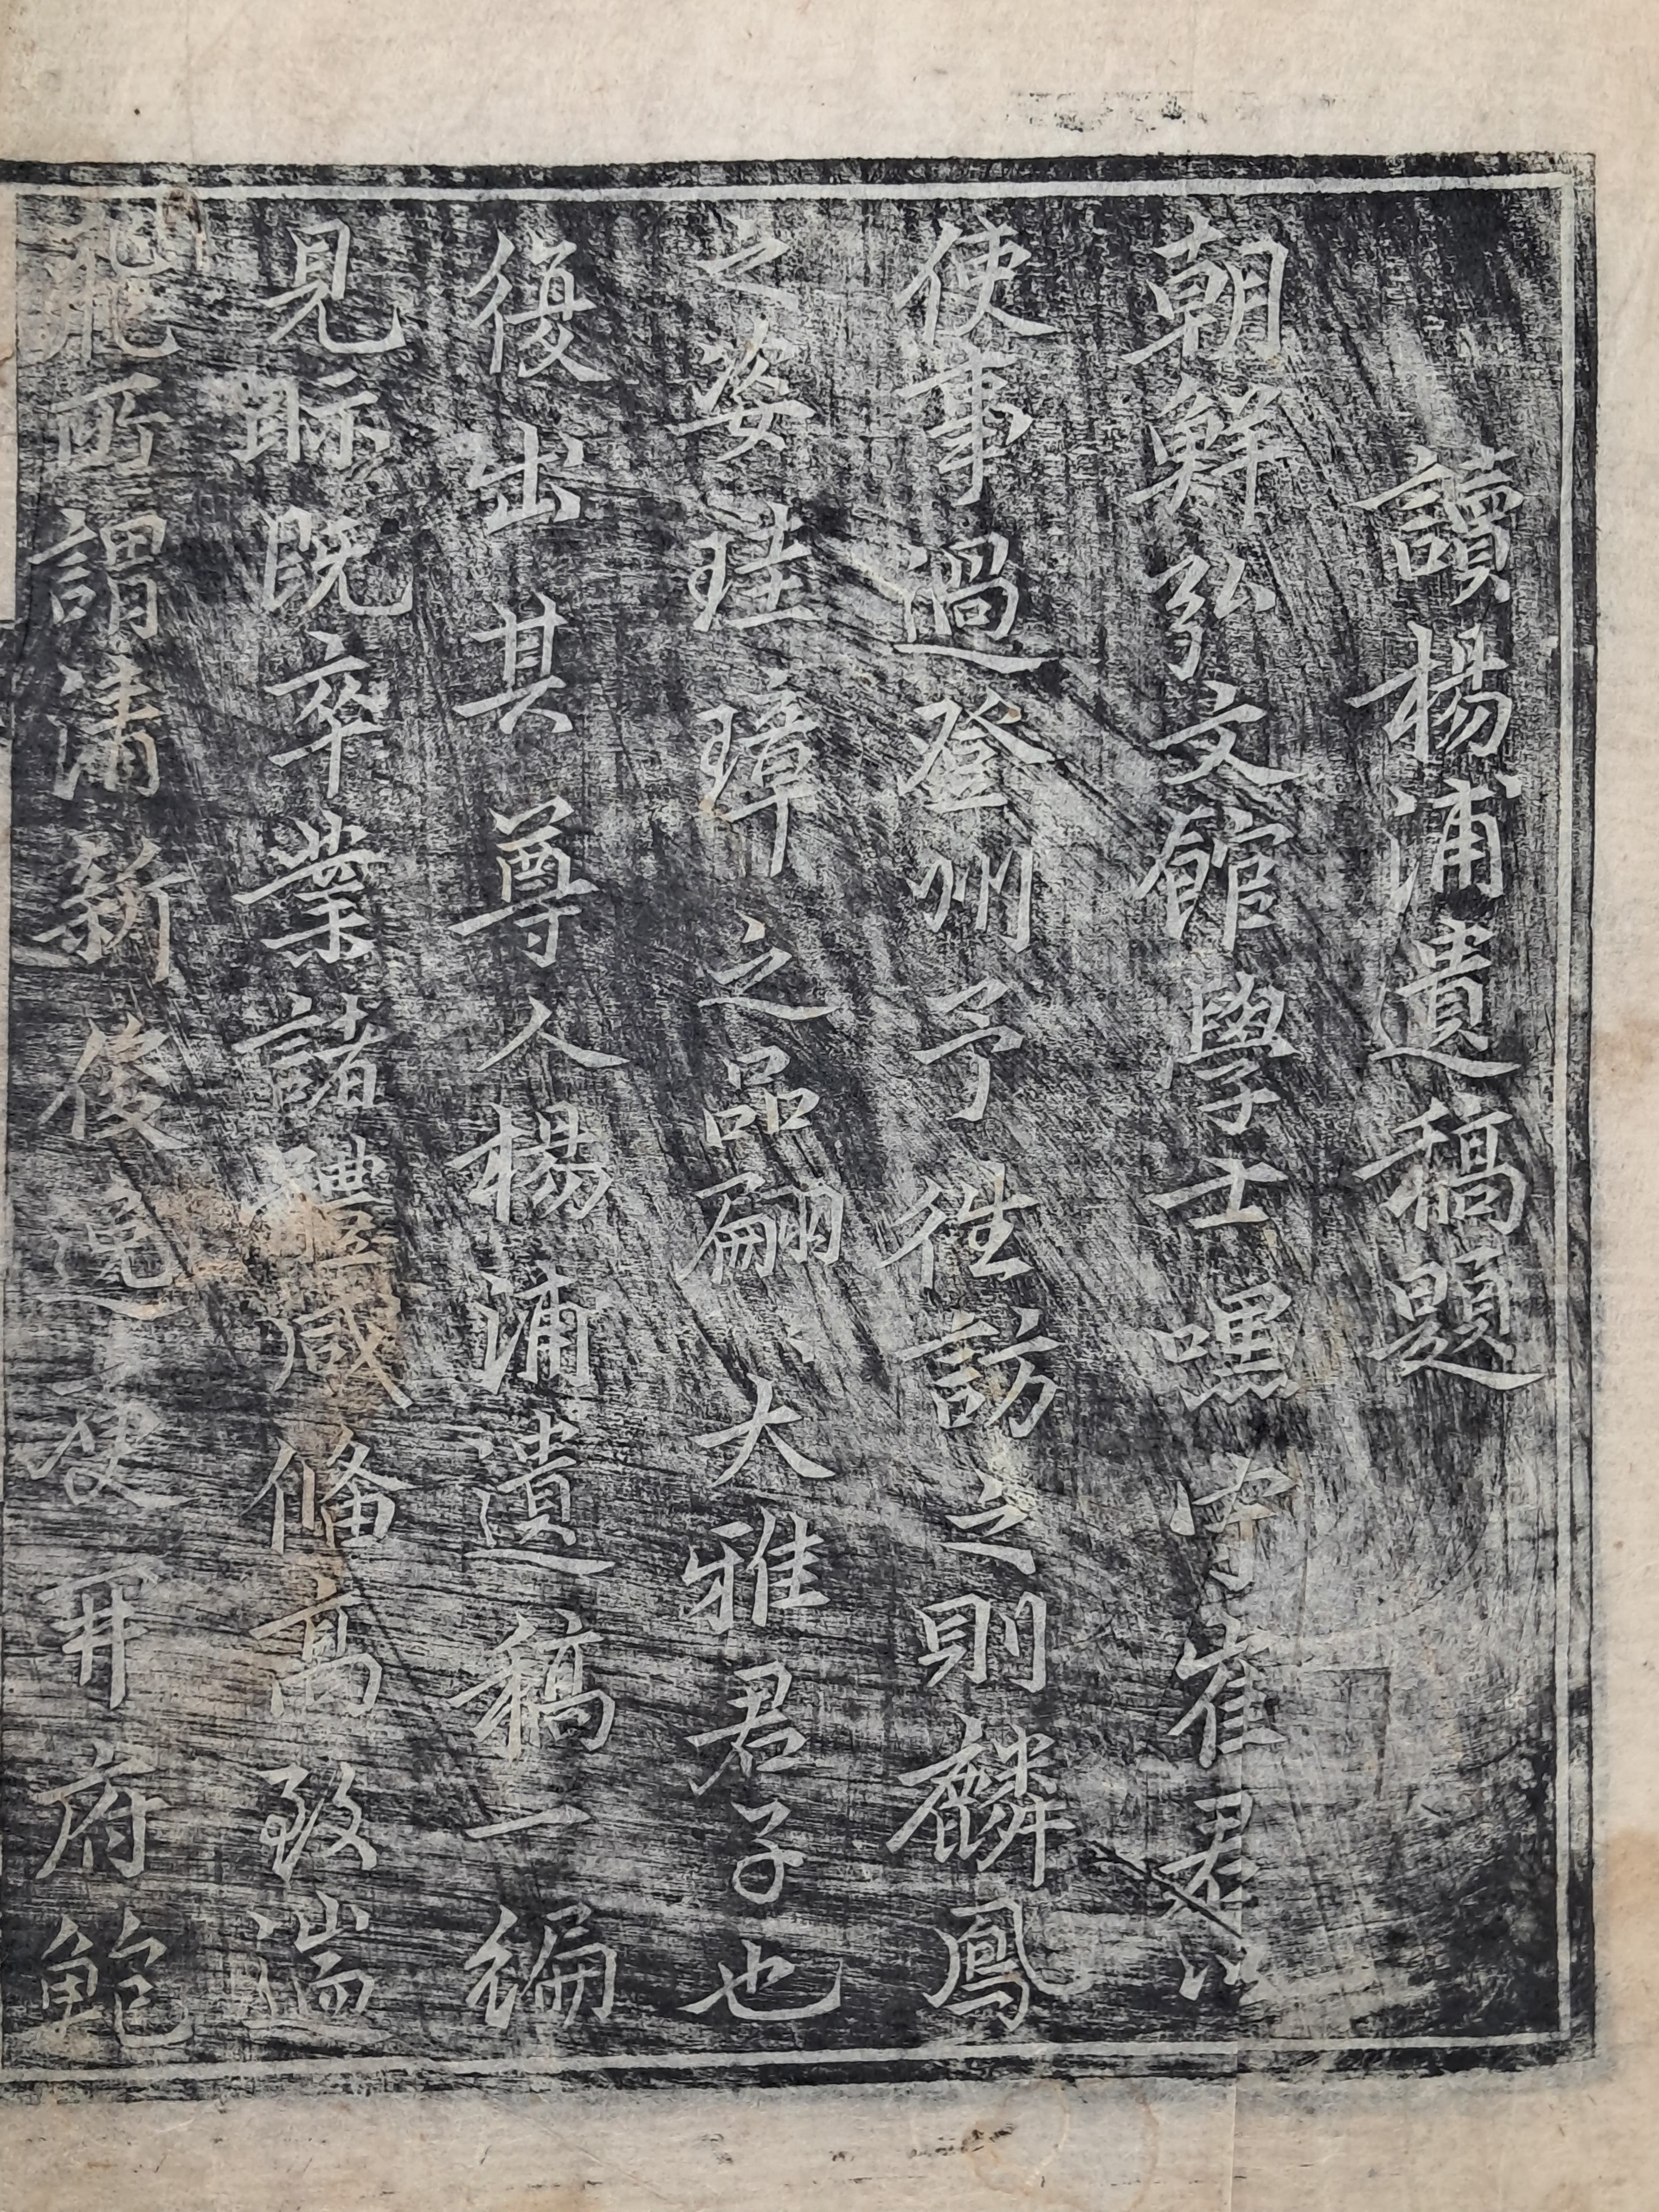 讀楊浦遺稿題
朝鮮弘文館學士嘿守崔君以
使事過登州予徃訪之則麟鳳
之姿珪璋之品翩〻大雅君子也
復出其尊人楊浦遺稿一編
見眎既卒業諸體咸備高致遄
飛所謂清新俊逸更開府鮑